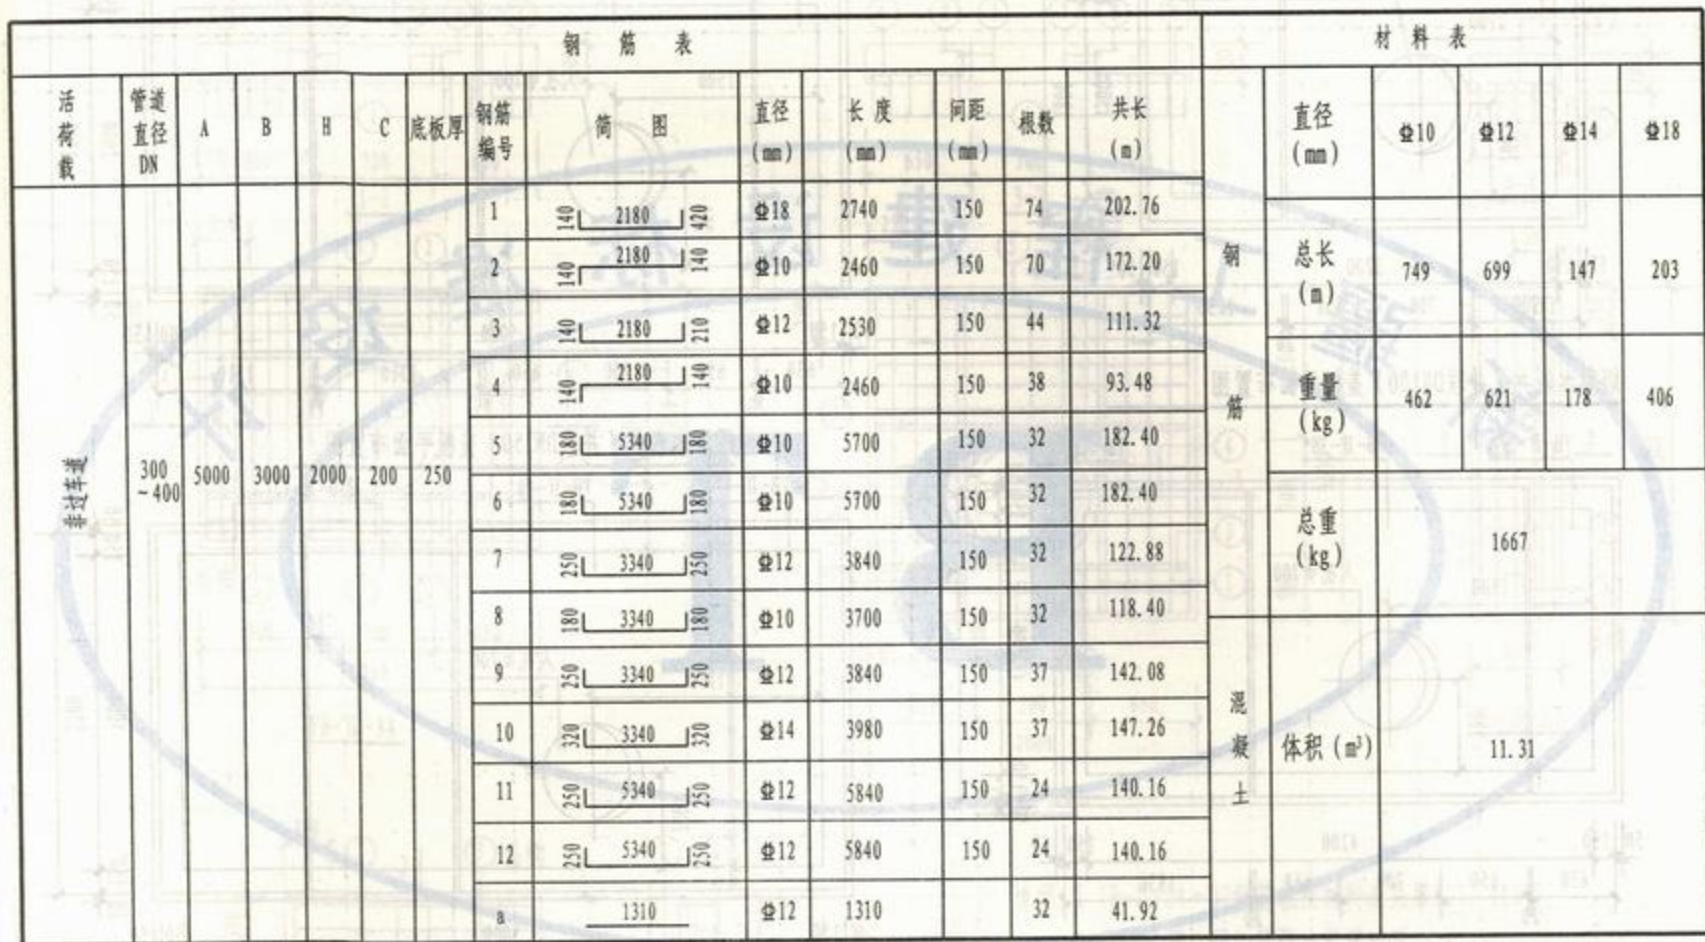 钢 筋 表
材 料 表
活荷载 管道直径DN A B H C 底板厚 钢筋编号 简 图 直径(mm) 长度(mm) 间距(mm) 根数 共长(m)
直径(mm) ⌀10 ⌀12 ⌀14 ⌀18
非过车道 300~400 5000 3000 2000 200 250
1 140 2180 420 ⌀18 2740 150 74 202.76
2 140 2180 140 ⌀10 2460 150 70 172.20
3 140 2180 210 ⌀12 2530 150 44 111.32
4 140 2180 140 ⌀10 2460 150 38 93.48
5 180 5340 180 ⌀10 5700 150 32 182.40
6 180 5340 180 ⌀10 5700 150 32 182.40
7 250 3340 250 ⌀12 3840 150 32 122.88
8 180 3340 180 ⌀10 3700 150 32 118.40
9 250 3340 250 ⌀12 3840 150 37 142.08
10 320 3340 320 ⌀14 3980 150 37 147.26
11 250 5340 250 ⌀12 5840 150 24 140.16
12 250 5340 250 ⌀12 5840 150 24 140.16
a 1310 ⌀12 1310 32 41.92
钢筋
总长(m) 749 699 147 203
重量(kg) 462 621 178 406
总重(kg) 1667
混凝土 体积(m³) 11.31